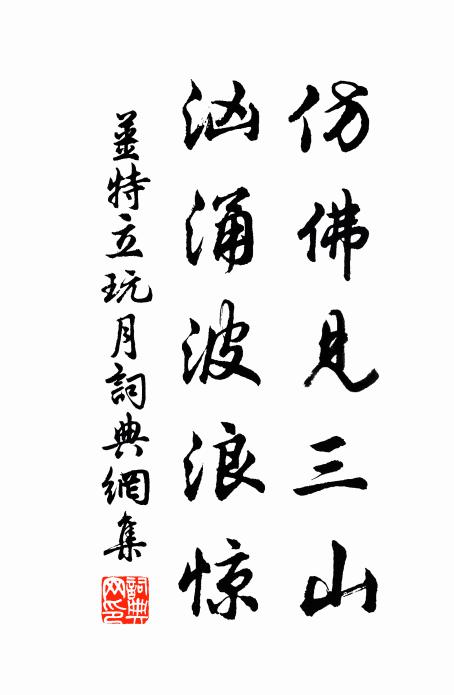 仿佛见三山
汹涌波浪惊
姜特立玩月詞典網集
詞典網印